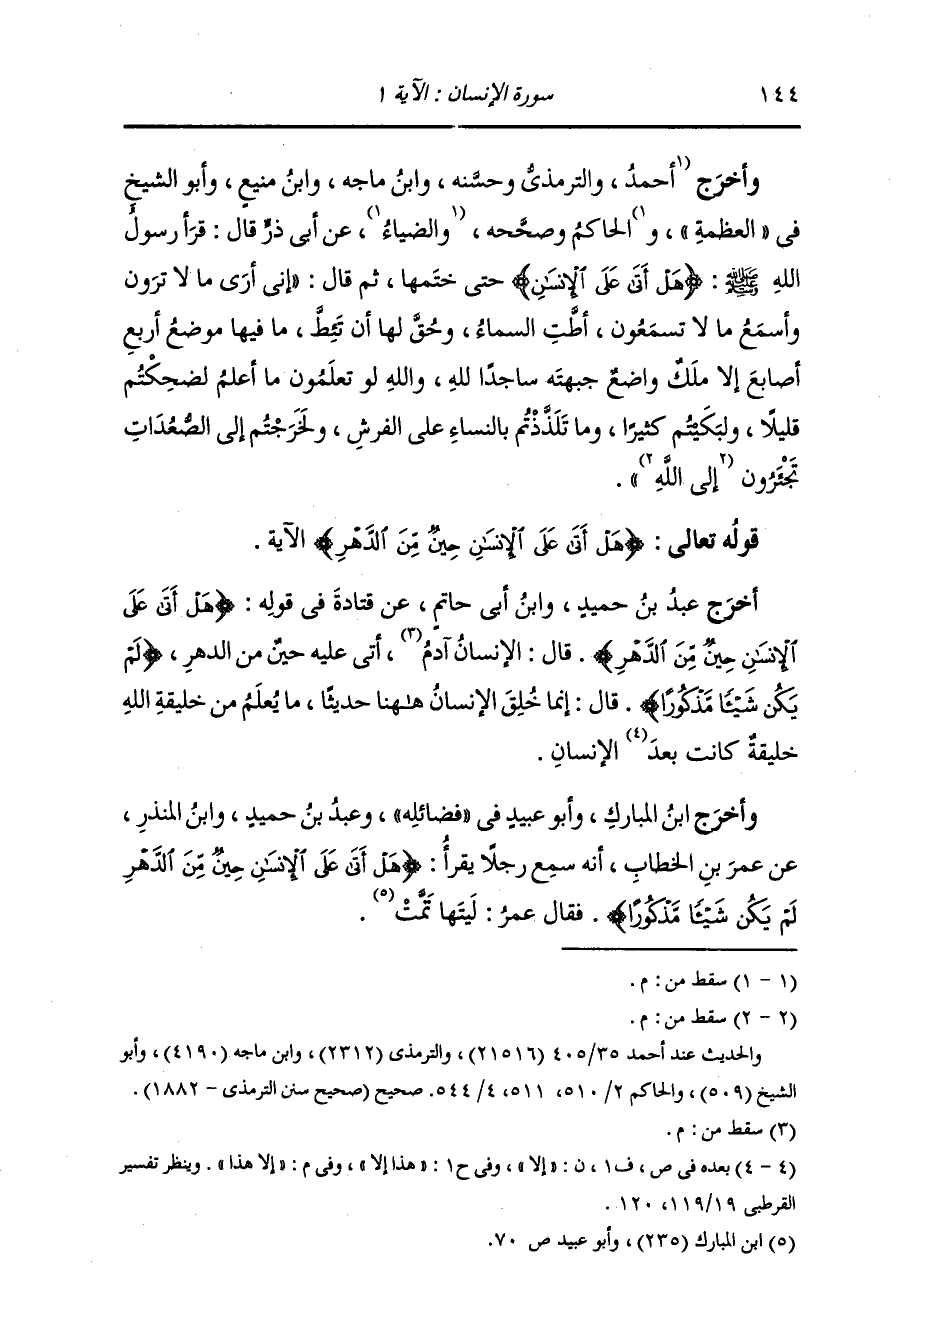 ١٤٤ سورة الإنسان : الآية ١
وأخرَج ⁽¹أحمدُ ، والترمذىُّ وحسَّنه ، وابنُ ماجه ، وابنُ منيعٍ ، وأبو الشيخِ
فى « العظمةِ » ، و¹⁾الحاكمُ وصحَّحه ، ⁽¹والضياءُ¹⁾ ، عن أبى ذرٍّ قال : قرَأ رسولُ
اللهِ ﷺ : ﴿هَلْ أَتَىٰ عَلَى ٱلْإِنسَٰنِ﴾ حتى ختَمها ، ثم قال : « إنى أرَى ما لا ترَون
وأسمَعُ ما لا تسمَعُون ، أطَّتِ السماءُ ، وحُقَّ لها أن تَئِطَّ ، ما فيها موضعُ أربعِ
أصابعَ إلا ملَكٌ واضعٌ جبهتَه ساجدًا للهِ ، واللهِ لو تعلَمُون ما أعلمُ لضحِكْتُم
قليلًا ، ولبَكَيْتُم كثيرًا ، وما تَلَذَّذْتُم بالنساءِ على الفرشِ ، ولَخَرَجْتُم إلى الصُّعُدَاتِ
تَجْئَرُون ⁽²إلى اللَّهِ²⁾ » .
قولُه تعالى : ﴿هَلْ أَتَىٰ عَلَى ٱلْإِنسَٰنِ حِينٌ مِّنَ ٱلدَّهْرِ﴾ الآية .
أخرَج عبدُ بنُ حميدٍ ، وابنُ أبى حاتمٍ ، عن قتادةَ فى قولِه : ﴿هَلْ أَتَىٰ عَلَى
ٱلْإِنسَٰنِ حِينٌ مِّنَ ٱلدَّهْرِ﴾ . قال : الإنسانُ آدمُ⁽³⁾ ، أتى عليه حينٌ من الدهرِ ، ﴿لَمْ
يَكُن شَيْـًٔا مَّذْكُورًا﴾ . قال : إنما خُلِقَ الإنسانُ هٰهنا حديثًا ، ما يُعلَمُ من خليقةِ اللهِ
خليقةٌ كانت بعدَ⁽⁴⁾ الإنسانِ .
وأخرَج ابنُ المباركِ ، وأبو عبيدٍ فى « فضائلِه » ، وعبدُ بنُ حميدٍ ، وابنُ المنذرِ ،
عن عمرَ بنِ الخطابِ ، أنه سمِع رجلًا يقرأُ : ﴿هَلْ أَتَىٰ عَلَى ٱلْإِنسَٰنِ حِينٌ مِّنَ ٱلدَّهْرِ
لَمْ يَكُن شَيْـًٔا مَّذْكُورًا﴾ . فقال عمرُ : لَيتَها تَمَّتْ⁽⁵⁾ .
(١ - ١) سقط من : م .
(٢ - ٢) سقط من : م .
والحديث عند أحمد ٤٠٥/٣٥ (٢١٥١٦) ، والترمذى (٢٣١٢) ، وابن ماجه (٤١٩٠) ، وأبو
الشيخ (٥٠٩) ، والحاكم ٢/ ٥١٠، ٥١١، ٤/ ٥٤٤. صحيح (صحيح سنن الترمذى - ١٨٨٢) .
(٣) سقط من : م .
(٤ - ٤) بعده فى ص ، ف١ ، ن : « إلا » ، وفى ح١ : « هذا إلا » ، وفى م : « إلا هذا » . وينظر تفسير
القرطبى ١١٩/١٩، ١٢٠ .
(٥) ابن المبارك (٢٣٥) ، وأبو عبيد ص ٧٠.